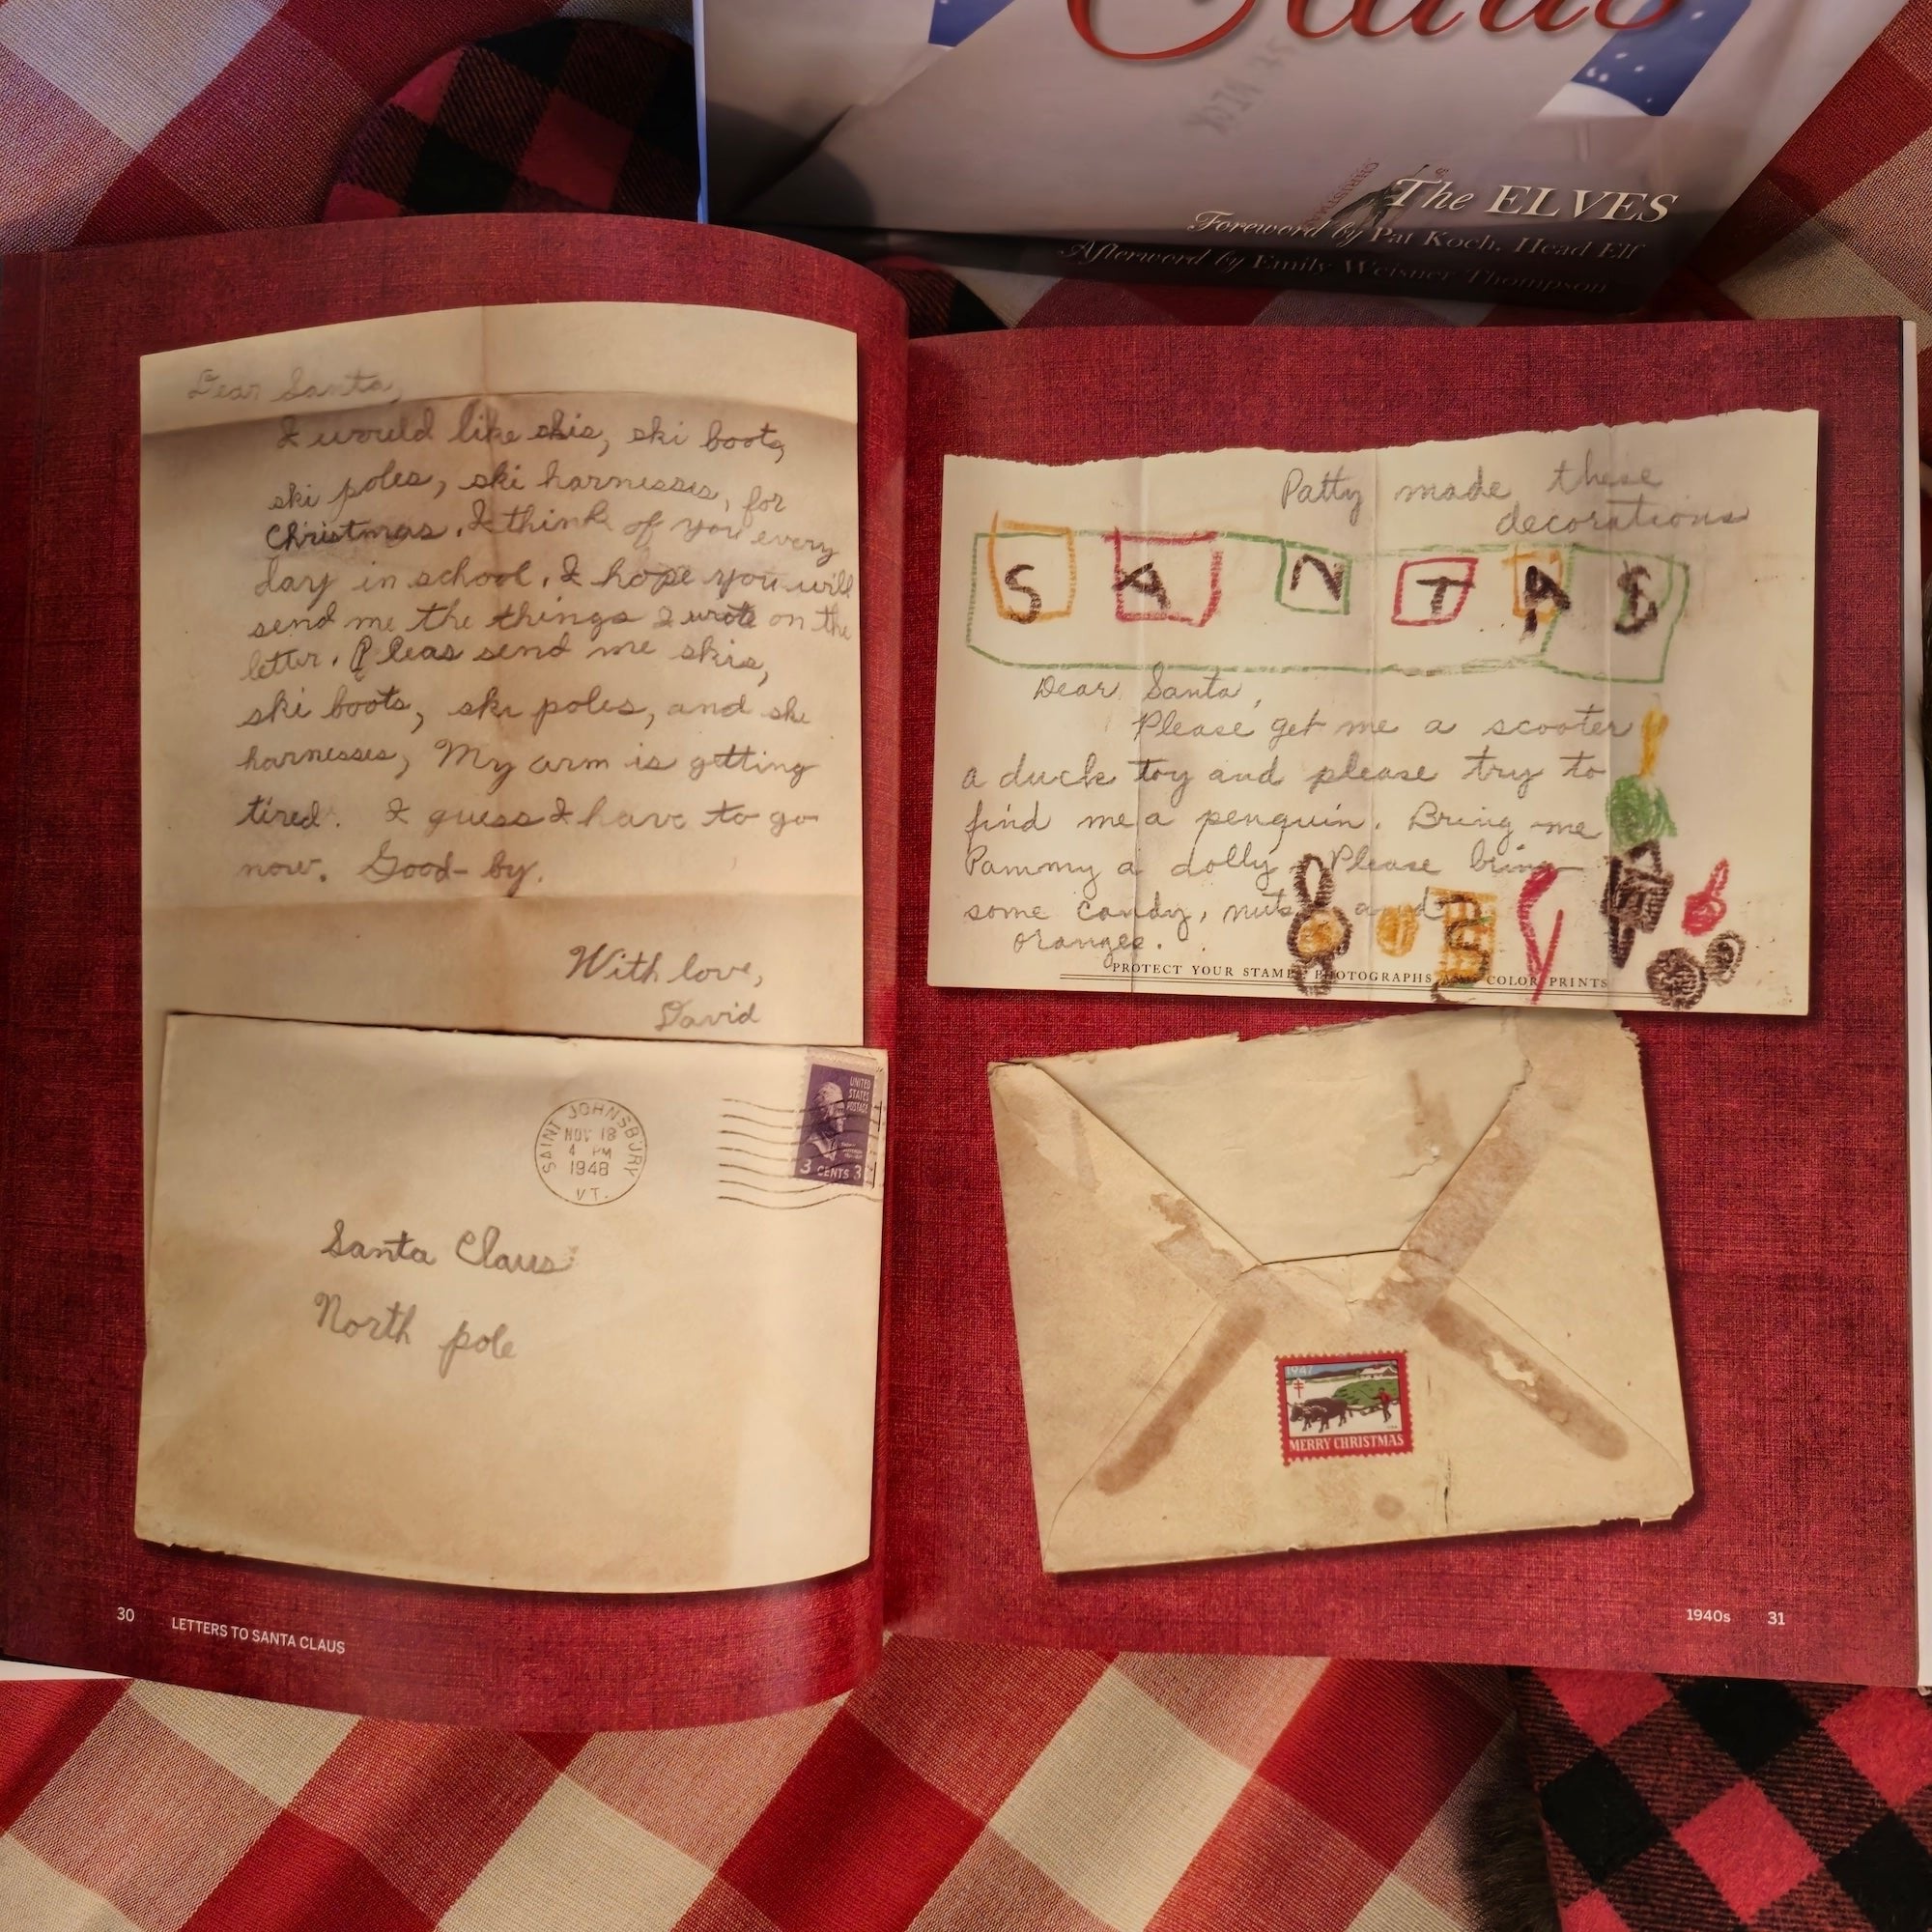 Claus
The ELVES
Foreword by Pat Koch, Head Elf
Afterword by Emily Weisner Thompson
Dear Santa,
I would like skis, ski boots,
ski poles, ski harnesses, for
Christmas. I think of you every
day in school. I hope you will
send me the things I wrote on the
letter. Pleas send me skis,
ski boots, ski poles, and ski
harnesses, My arm is getting
tired. I guess I have to go
now. Good-by.
With love,
David
SAINT JOHNSBURY
NOV 18
4 PM
1948
VT.
UNITED
STATES
POSTAGE
3 CENTS 3
Santa Claus
North pole
30 LETTERS TO SANTA CLAUS
Patty made these
decorations
SANTAS
Dear Santa,
Please get me a scooter
a duck toy and please try to
find me a penguin. Bring me
Pammy a dolly. Please bring
some candy, nuts and
oranges.
PROTECT YOUR STAMPS PHOTOGRAPHS AND COLOR PRINTS
1947
MERRY CHRISTMAS
1940s 31